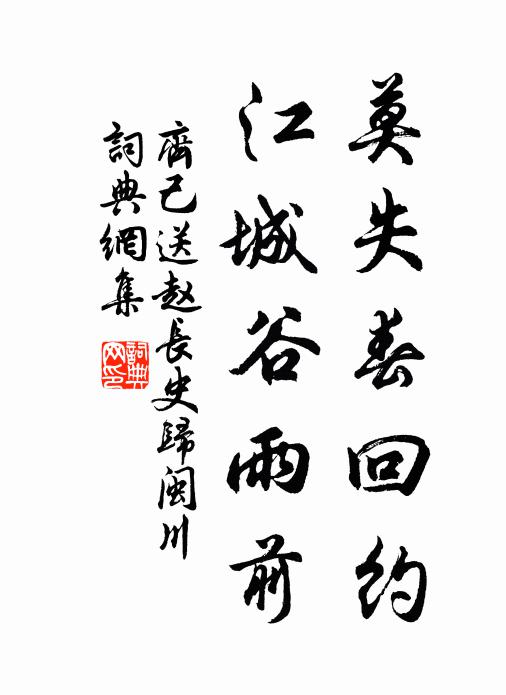 莫失春回约
江城谷雨前
齊己送赵長史歸闽川
詞典網集
詞典网印